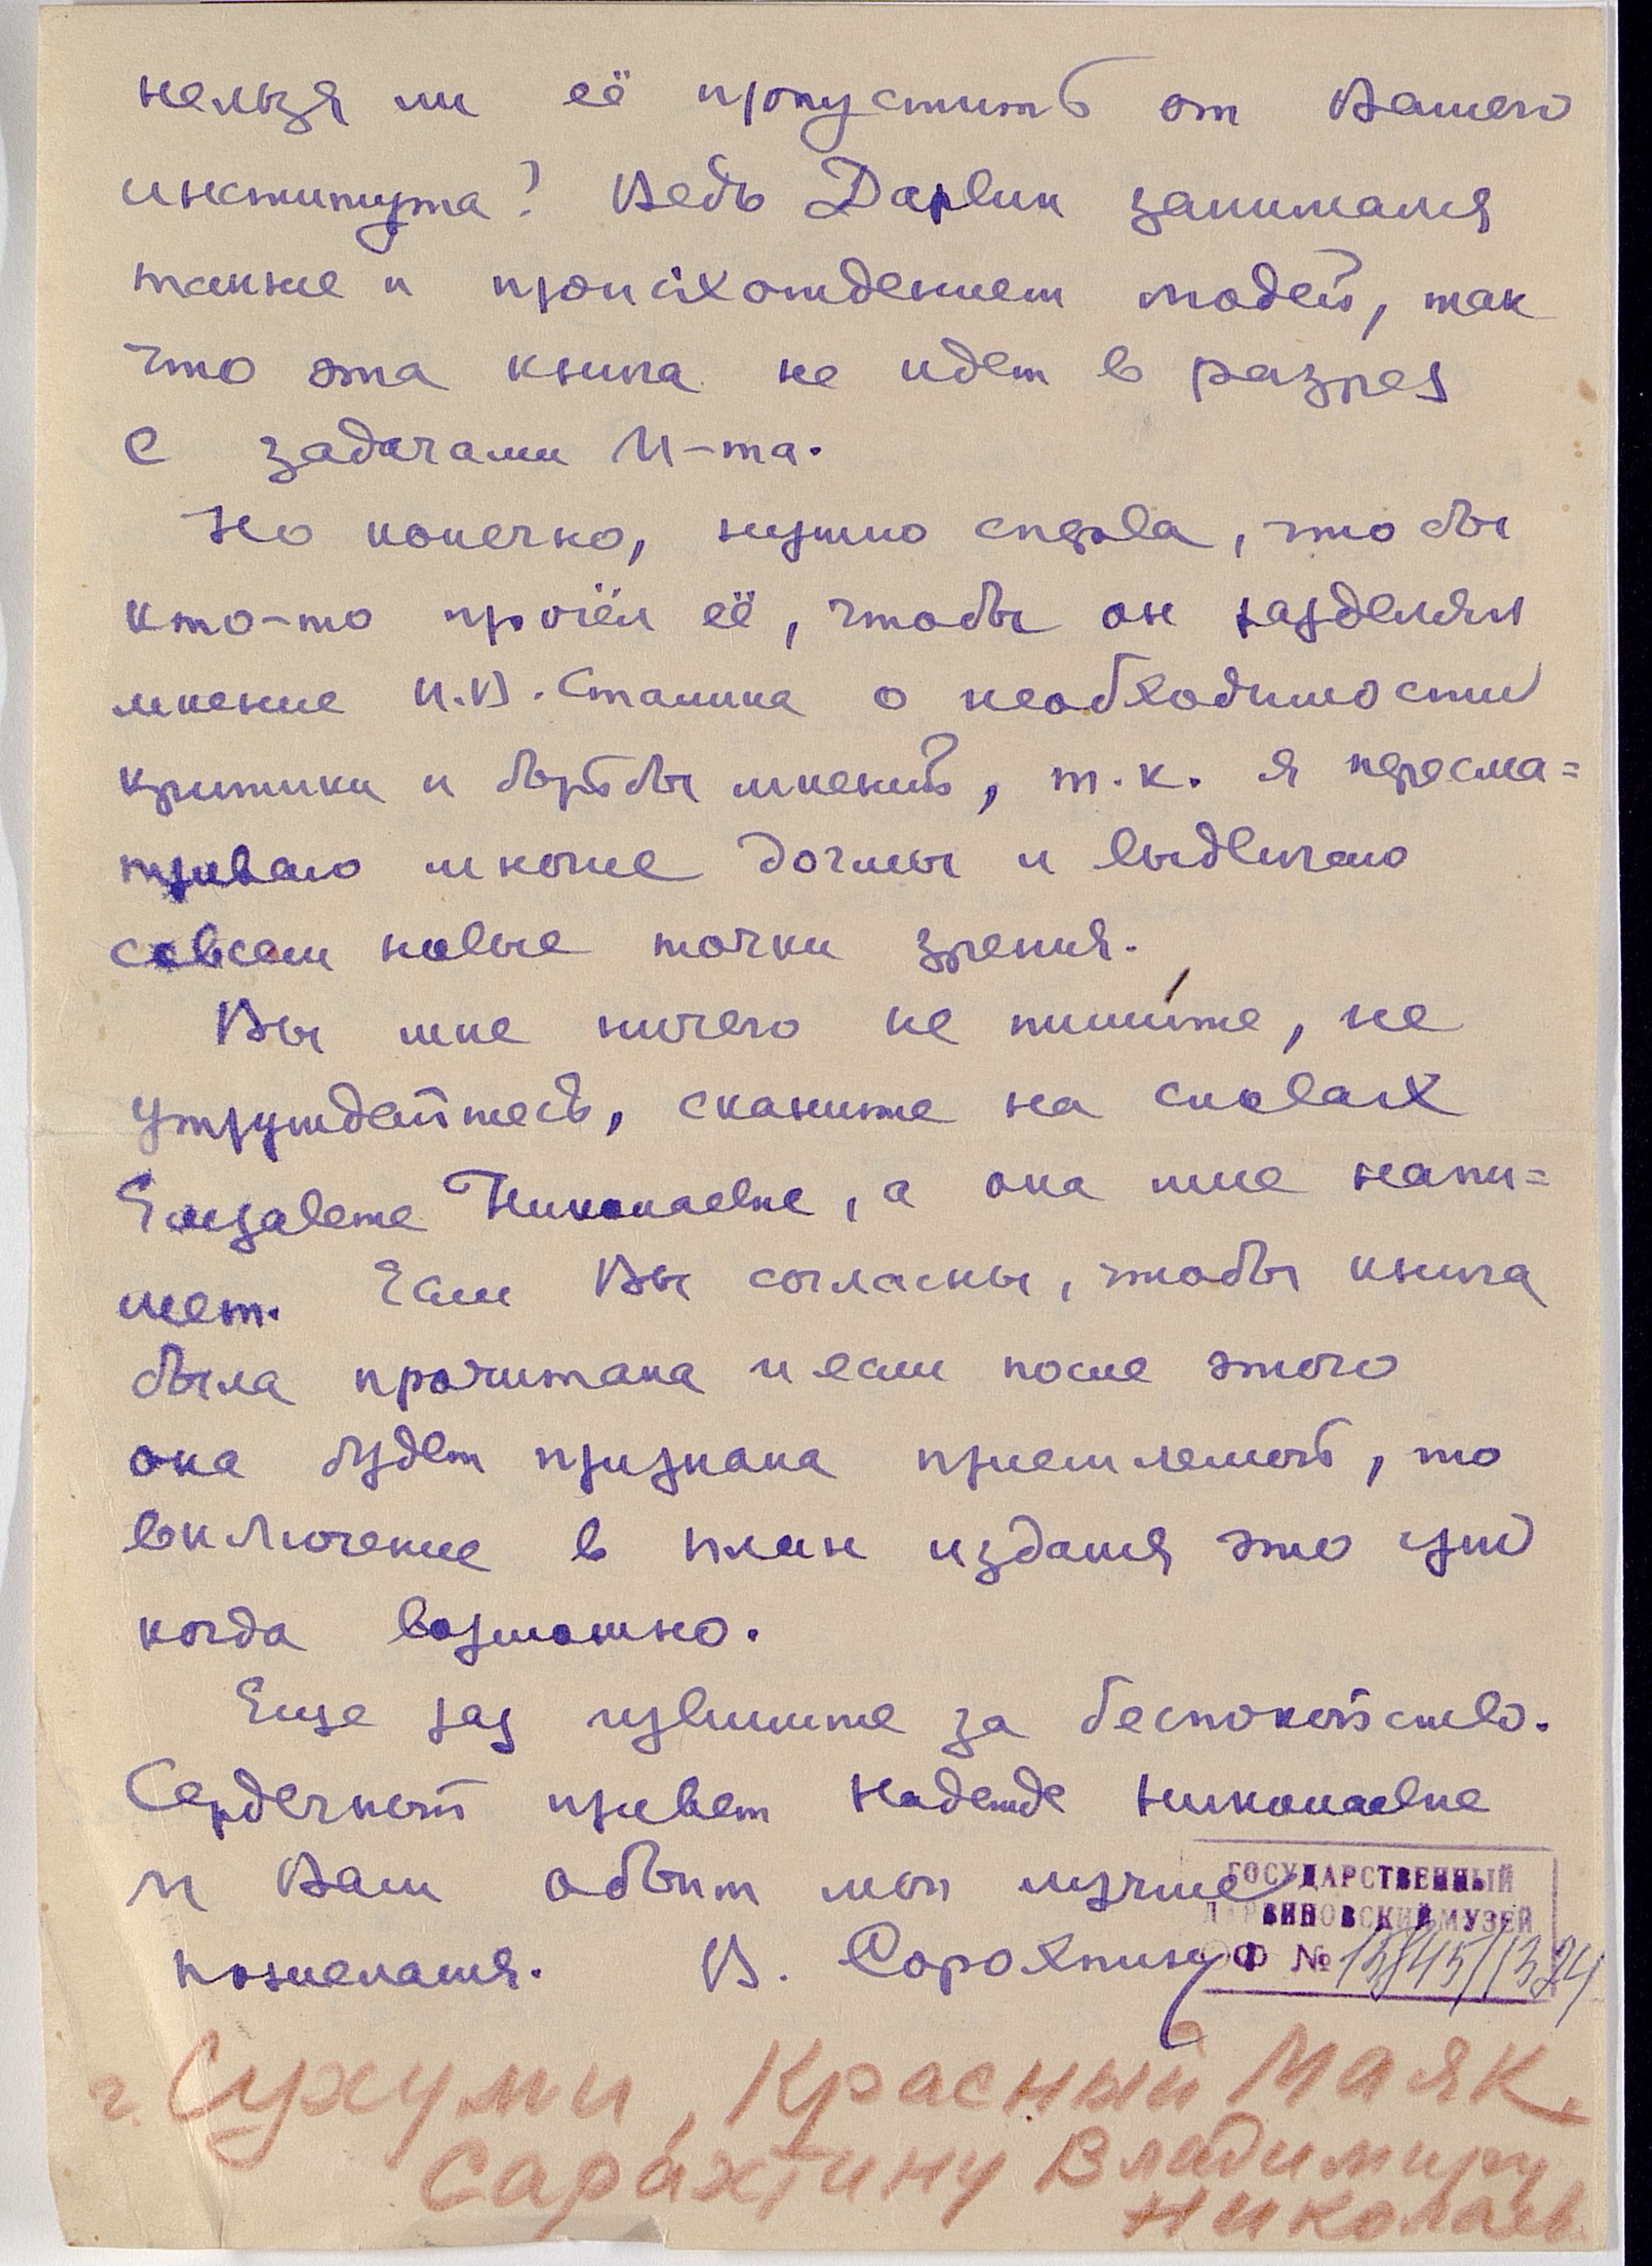 нельзя ли её пропустить от Вашего
института? Ведь Дарвин занимался
также и происхождением людей, так
что эта книга не идет в разрез
с задачами И-та.
Но конечно, нужно сперва, что бы
кто-то прочёл её, чтобы он разделял
мнение И.В. Сталина о необходимости
критики и борьбы мнений, т.к. я пересма=
триваю многие догмы и выдвигаю
совсем новые точки зрения.
Вы мне ничего не пиши́те, не
утруждайтесь, скажите на словах
Елизавете Николаевне, а она мне напи=
шет. Если Вы согласны, чтобы книга
была прочитана и если после этого
она будет признана приемлемой, то
включение в план издания это уж
когда возможно.
Еще раз извините за беспокойство.
Сердечный привет Надежде Николаевне
и Вам обоим мои лучшие
пожелания. В. Сорохтин
ГОСУДАРСТВЕННЫЙ
ДАРВИНОВСКИЙ МУЗЕЙ
ОФ № 15845/1324
г. Сухуми, Красный Маяк.
Сара́хтину Владимиру
Николаев.